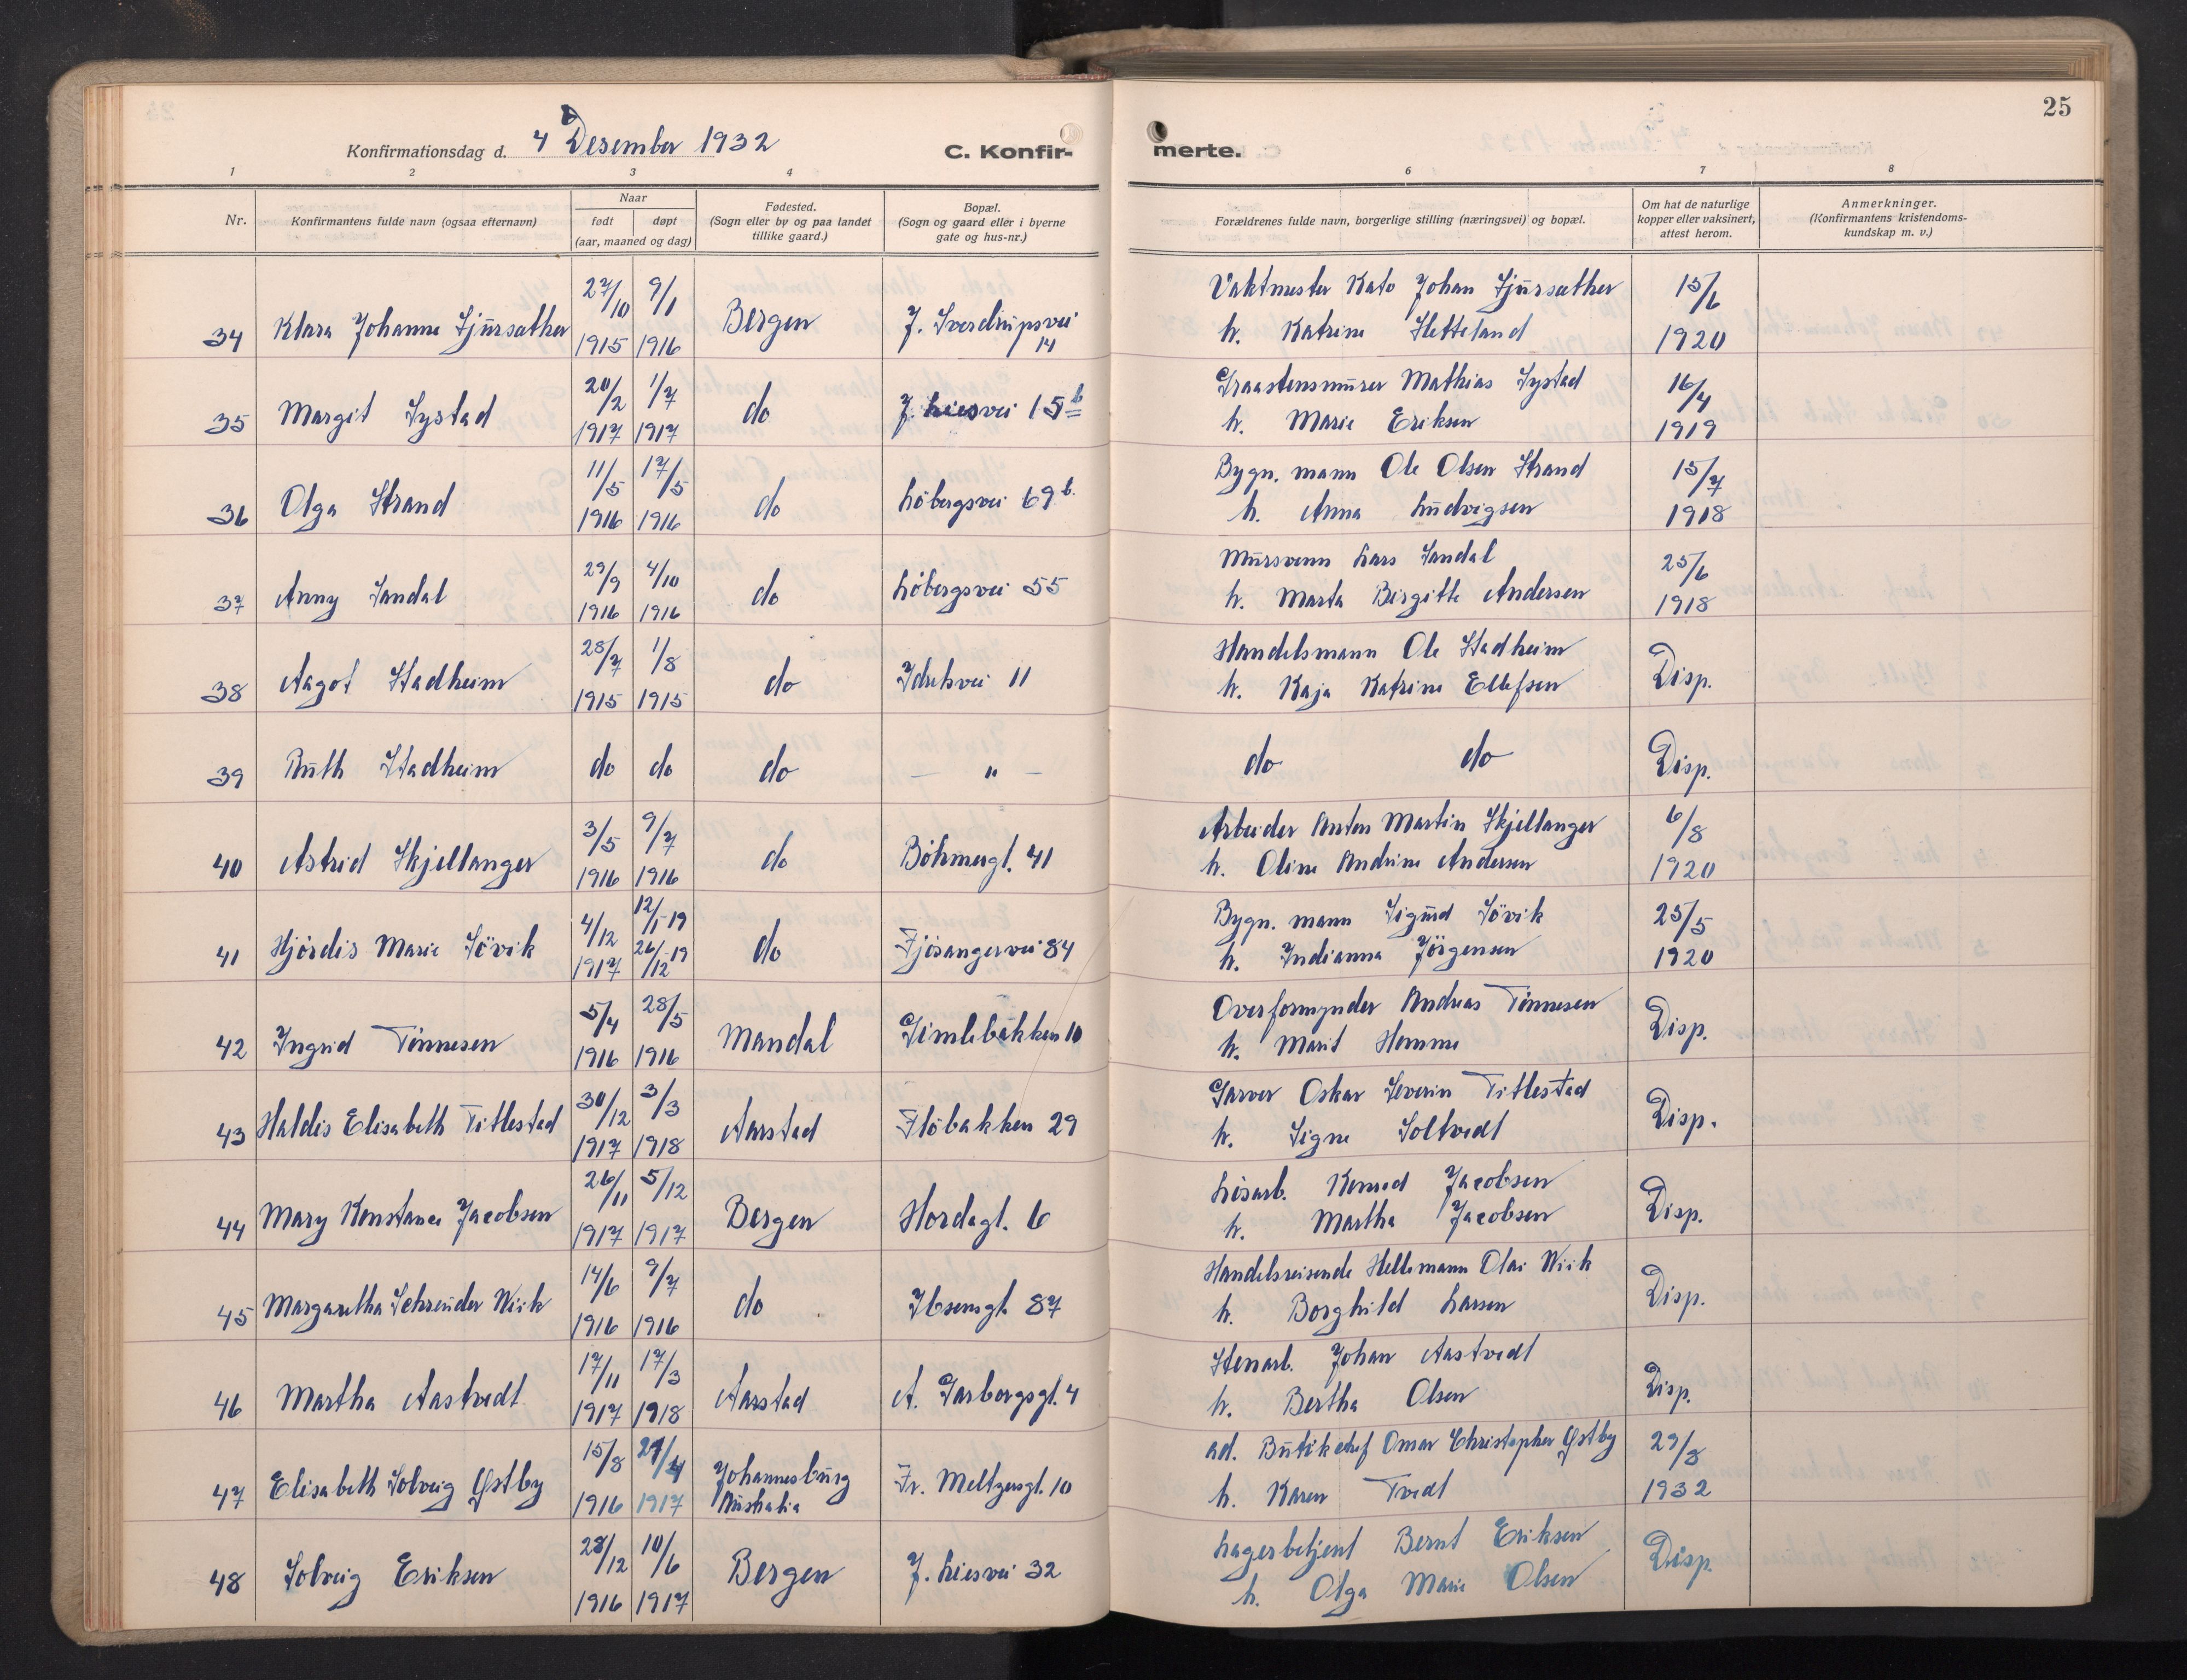 25
Konfirmationsdag d. 4 Desember 1932
C. Konfir-
merte.
1 2 3 4 6 7 8
Nr.
Konfirmantens fulde navn (ogsaa efternavn)
Naar
født døpt
(aar, maaned og dag)
Fødested.
(Sogn eller by og paa landet
tillike gaard.)
Bopæl.
(Sogn og gaard eller i byerne
gate og hus-nr.)
Forældrenes fulde navn, borgerlige stilling (næringsvei) og bopæl.
Om hat de naturlige
kopper eller vaksinert,
attest herom.
Anmerkninger.
(Konfirmantens kristendoms-
kundskap m. v.)
27/10 9/1 Vaktmester Kato Johan Fjürsæther 15/6
34 Klara Johanne Fjürsæther 1915 1916 Bergen J. Sverdrupsvei 14 h. Katrine Sletteland 1920
20/2 1/7 Graastensmürer Mathias Systad 16/4
35 Margit Systad 1917 1917 do J. Liesvei 15b h. Marie Eriksen 1919
11/5 17/5 Bygn. mann Ole Olsen Strand 15/7
36 Olga Strand 1916 1916 do Löbergsvei 69b. h. Anna Lüdvigsen 1918
29/9 4/10 Mürsvenn Lars Sandal 25/6
37 Anny Sandal 1916 1916 do Löbergsvei 55 h. Marta Birgitte Andersen 1918
28/7 1/8 Handelsmann Ole Stadheim
38 Aagot Stadheim 1915 1915 do Idretsvei 11 h. Kaja Katrine Ellefsen Disp.
39 Rüth Stadheim do do do — " — do do Disp.
3/5 9/7 Arbeider Anton Martin Skjellanger 6/8
40 Astrid Skjellanger 1916 1916 do Böhmergt. 41 h. Oline Andrine Andersen 1920
4/12 12/1-19 Bygn. mann Sigürd Sövik 25/5
41 Hjördis Marie Sövik 1917 26/12-19 do Fjösangervei 84 h. Indianna Jörgensen 1920
5/4 28/5 Overformynder Andreas Tönnesen
42 Ingrid Tönnesen 1916 1916 Mandal Gimlebakken 10 h. Marit Homme Disp.
30/12 3/3 Garver Oskar Severin Titlestad
43 Haldis Elisabeth Titlestad 1917 1918 Aarstad Flöbakken 29 h. Signe Soltvedt Disp.
26/11 5/12 Lösarb. Konrad Jacobsen
44 Mary Konstance Jacobsen 1917 1917 Bergen Hordagt. 6 h. Martha Jacobsen Disp.
14/6 9/7 Handelsreisende Hellemann Olai Wiik
45 Margaretha Schreuder Wiik 1916 1916 do Ibsensgt. 87 h. Borghild Larsen Disp.
17/11 17/3 Stenarb. Johan Aastvedt
46 Martha Aastvedt 1917 1918 Aarstad A. Garborgsgt. 4 h. Bertha Olsen Disp.
15/8 29/4 ad. Bütikchef Omar Christopher Østby 29/8
47 Elisabeth Solveig Østby 1916 1917 Johannesbürg Aüstralia Fr. Meltzersgt. 10 h. Karen Tvedt 1932
28/12 10/6 Lagerbetjent Bernt Eriksen
48 Solveig Eriksen 1916 1917 Bergen J. Liesvei 32 h. Olga Marie Olsen Disp.